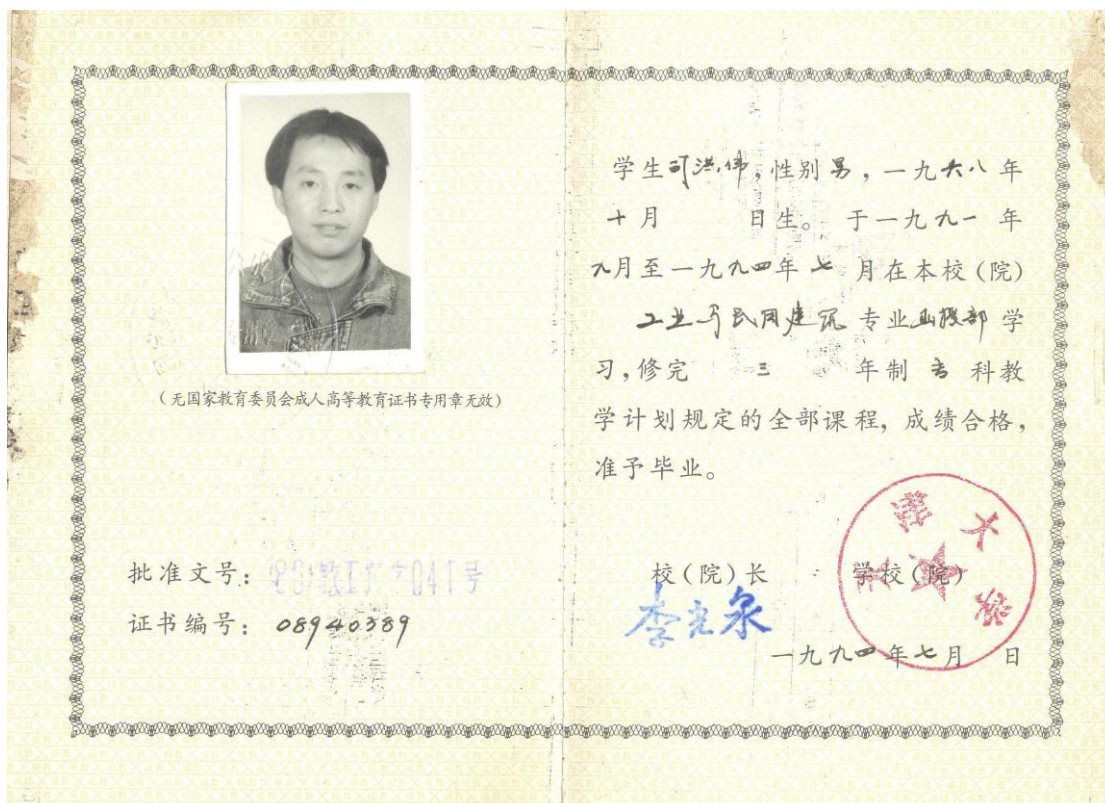 (无国家教育委员会成人高等教育证书专用章无效)
批准文号:
证书编号: 08940389
学生司洪伟,性别男,一九六八年
十月 日生。 于一九九一 年
九月至一九九四年七 月在本校(院)
工业与民用建筑 专业 学
习,修完 三 年制 专 科教
学计划规定的全部课程, 成绩合格,
准予毕业。
校(院)长 学校(院)
李光泉
一九九四年七月 日